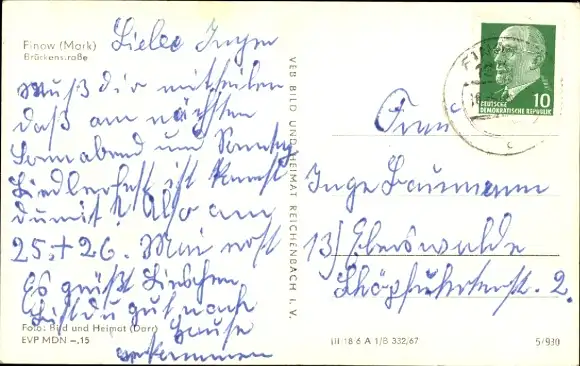 Finow (Mark)
Brückenstraße
Liebe Inge
Muß dir mitteilen
daß am nächsten
Sonnabend und Sonntag
Siedlerfest ist kannst
du mit? Also am
25.+26. Mai
Es grüßt Lieschen
Bist du gut nach
Hause
gekommen
Foto: Bild und Heimat (Darr)
EVP MDN –,15
VEB BILD UND HEIMAT REICHENBACH I. V.
DEUTSCHE
DEMOKRATISCHE REPUBLIK
10
Frau
Inge Baumann
13) Eberswalde
Schöpfurterstr. 2.
III 18 6 A 1/B 332/67
5/930